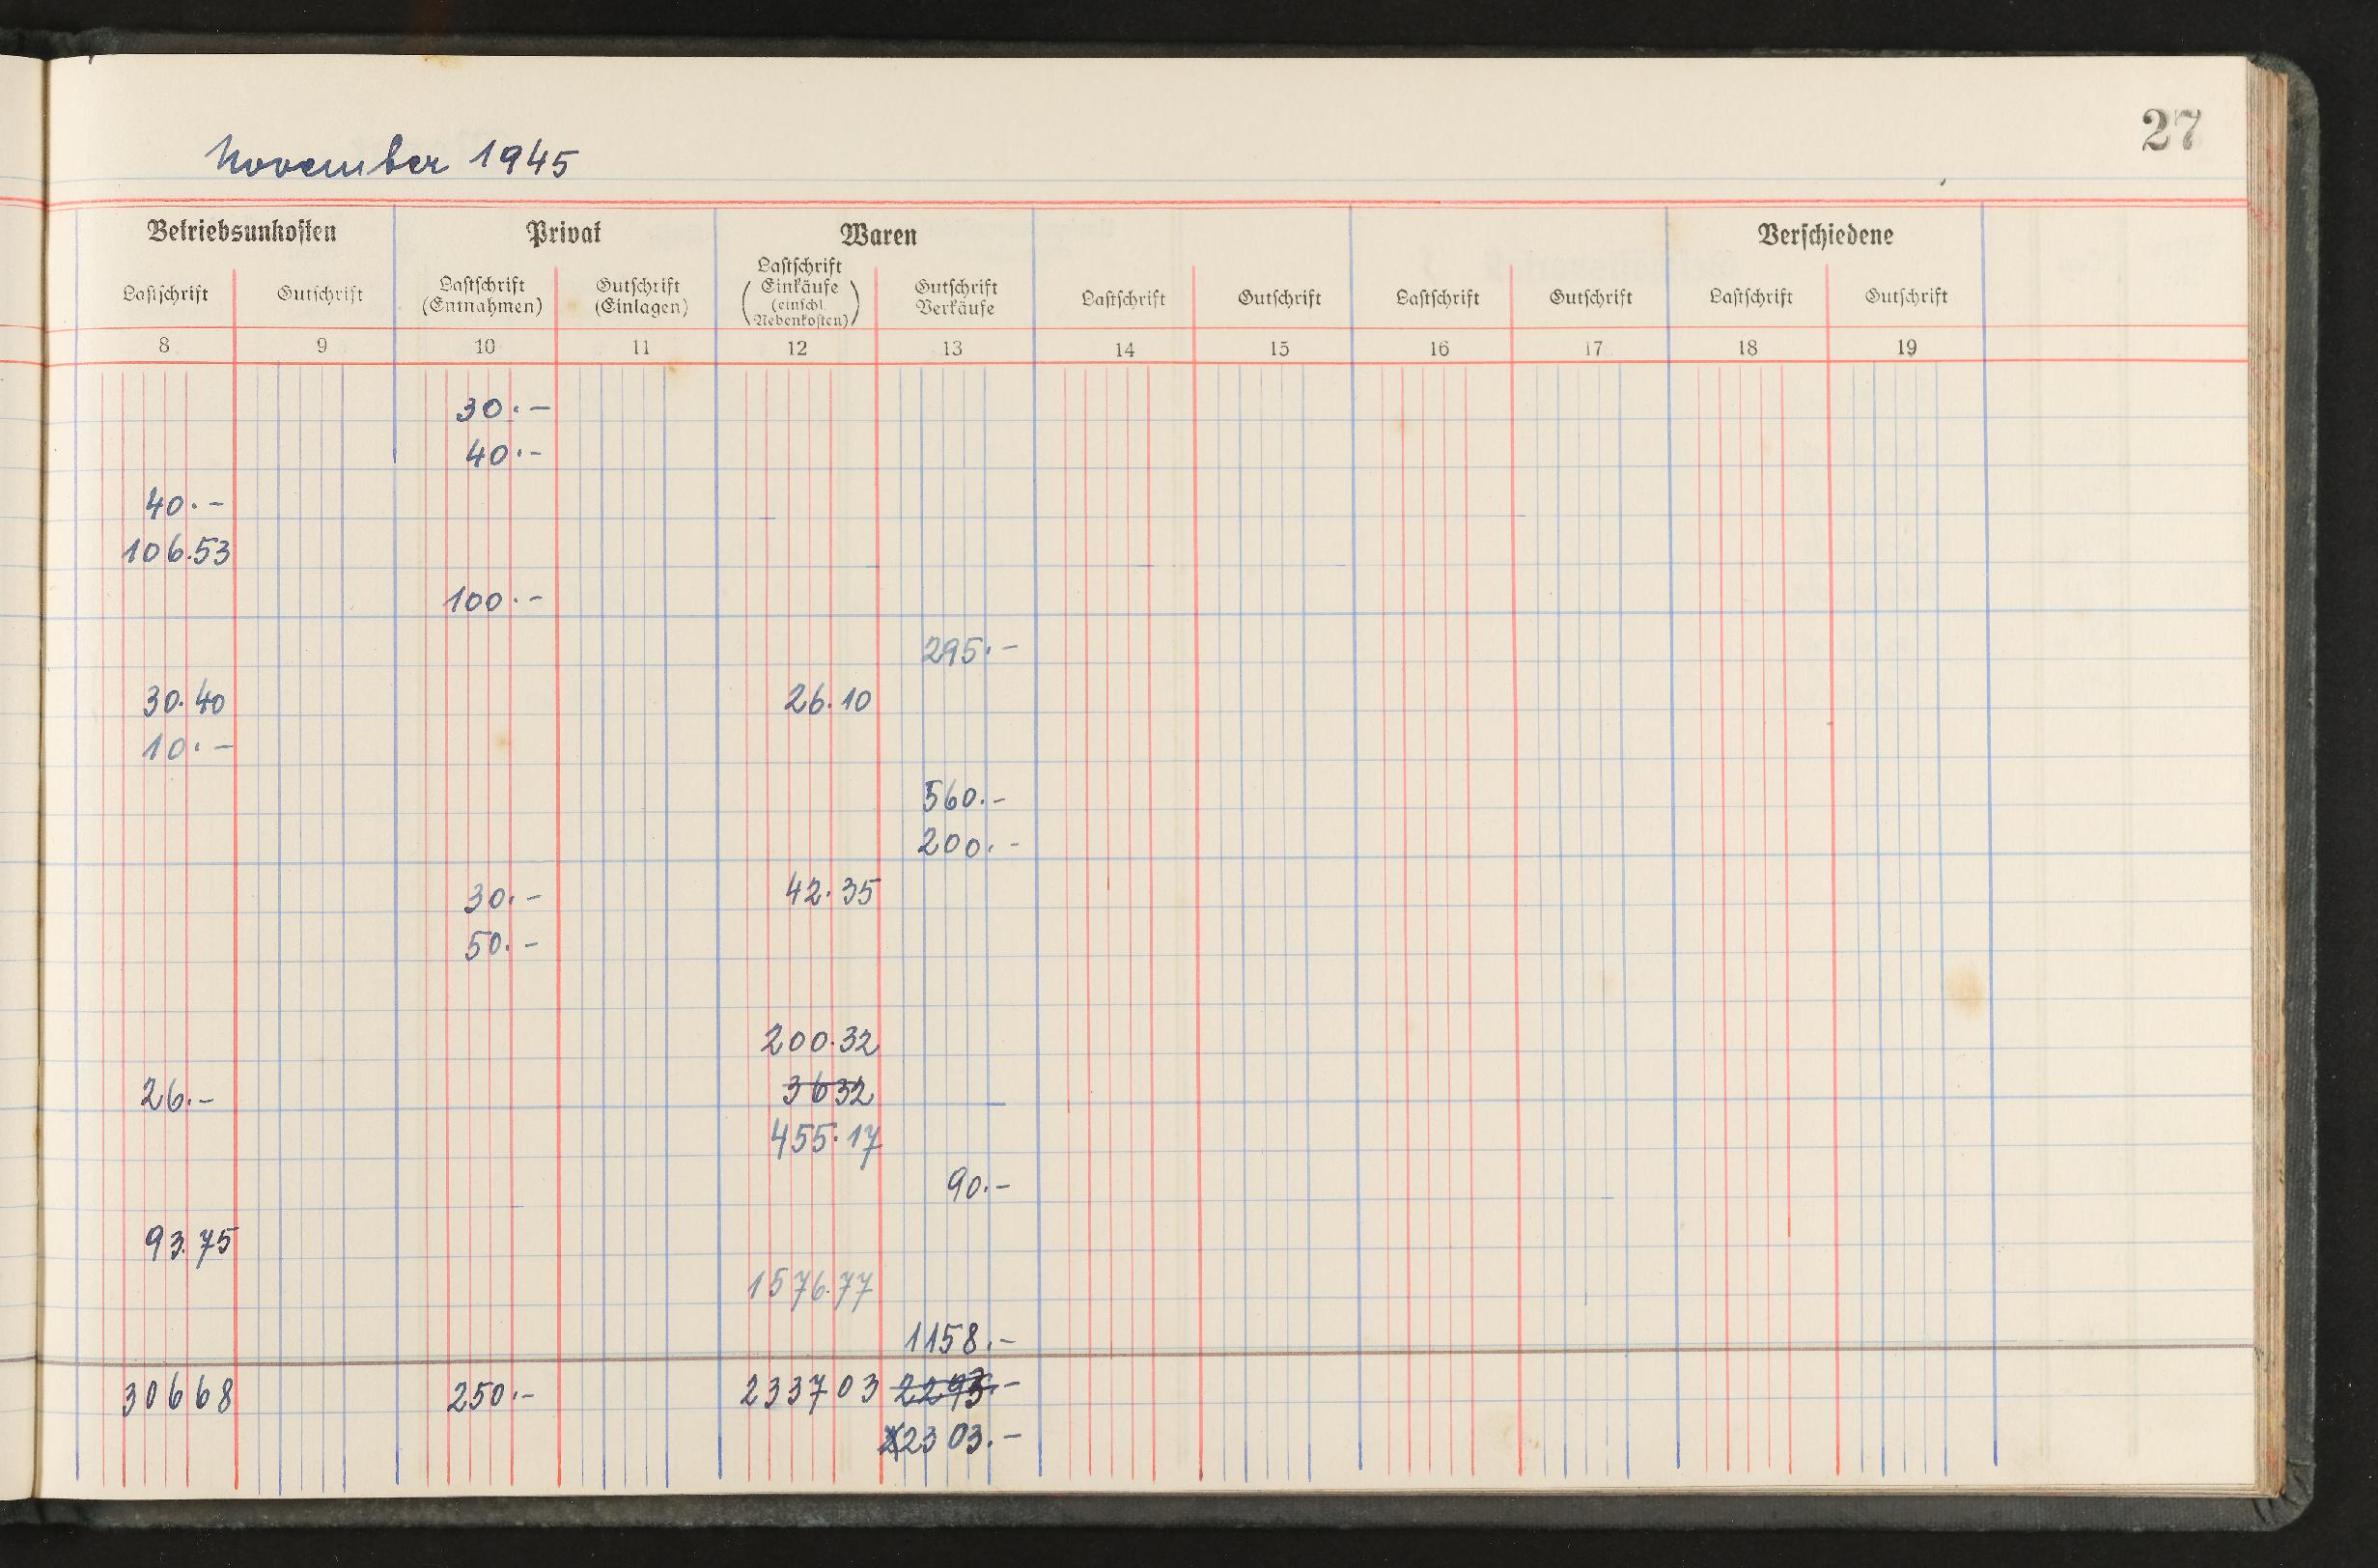 27
November 1945
Betriebsunkosten Privat Waren Verschiedene
Lastschrift Gutschrift Lastschrift (Entnahmen) Gutschrift (Einlagen) Lastschrift Einkäufe (einschl. Nebenkosten) Gutschrift Verkäufe Lastschrift Gutschrift Lastschrift Gutschrift Lastschrift Gutschrift
8 9 10 11 12 13 14 15 16 17 18 19
30.-
40.-
40.-
106.53
100.-
295.-
30.40 26.10
10.-
560.-
200.-
30.- 42.35
50.-
200.32
26.- 3632
455.17
90.-
93.75
1576.77
1158.-
30668 250.- 233703 2293.-
2303.-